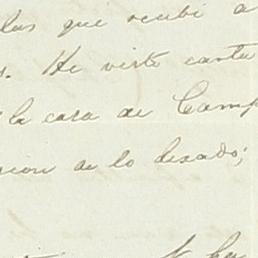 las que recibi a
s. He visto carta
la casa de Camp
cion de lo desado;